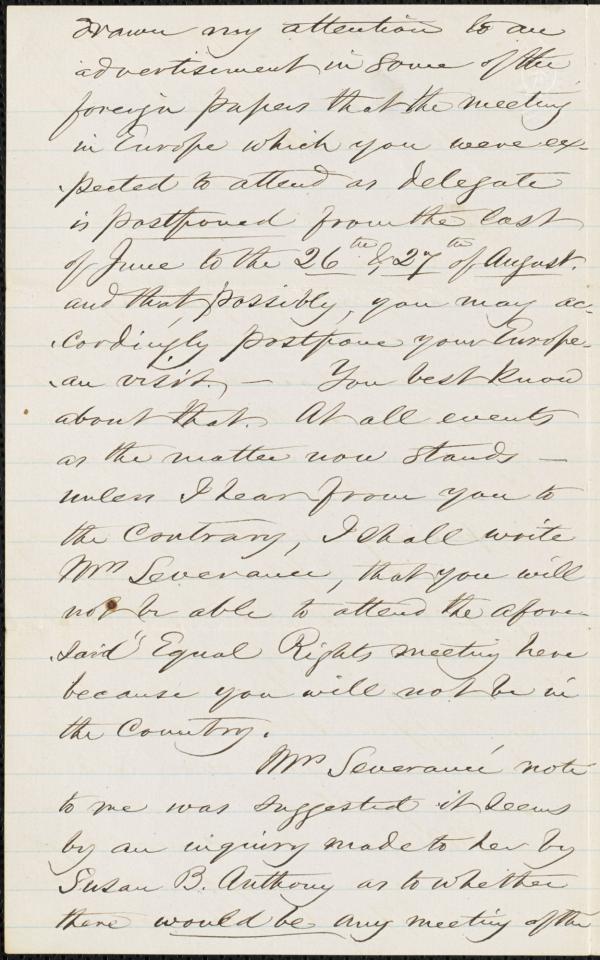 drawn my attention to an
advertisement in some of the
foreign papers that the meeting
in Europe which you were ex-
pected to attend as delegate
is postponed from the last
of June to the 26th & 27th of August.
and that possibly, you may ac-
cordingly postpone your Europe-
an visit, — You best know
about that. At all events
as the matter now stands —
unless I hear from you to
the contrary, I shall write
Mrs Severance, that you will
not be able to attend the afore-
said" Equal Rights meeting here
because you will not be in
the Country.
Mrs Severance' note
to me was suggested it seems
by an inquiry made to her by
Susan B. Anthony as to whether
there would be any meeting of the